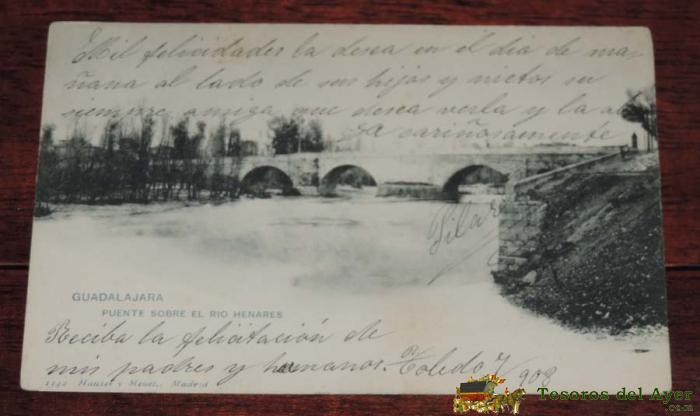 Mil felicidades la desea en el dia de ma-
ñana al lado de sus hijos y nietos su
siempre amiga que desea verla y la a
cariñosamente
Pilar
GUADALAJARA
PUENTE SOBRE EL RIO HENARES
Reciba la felicitación de
mis padres y hermanos. Toledo 903
1142 Hauser y Menet.- Madrid
Tesoros del Ayer
.com